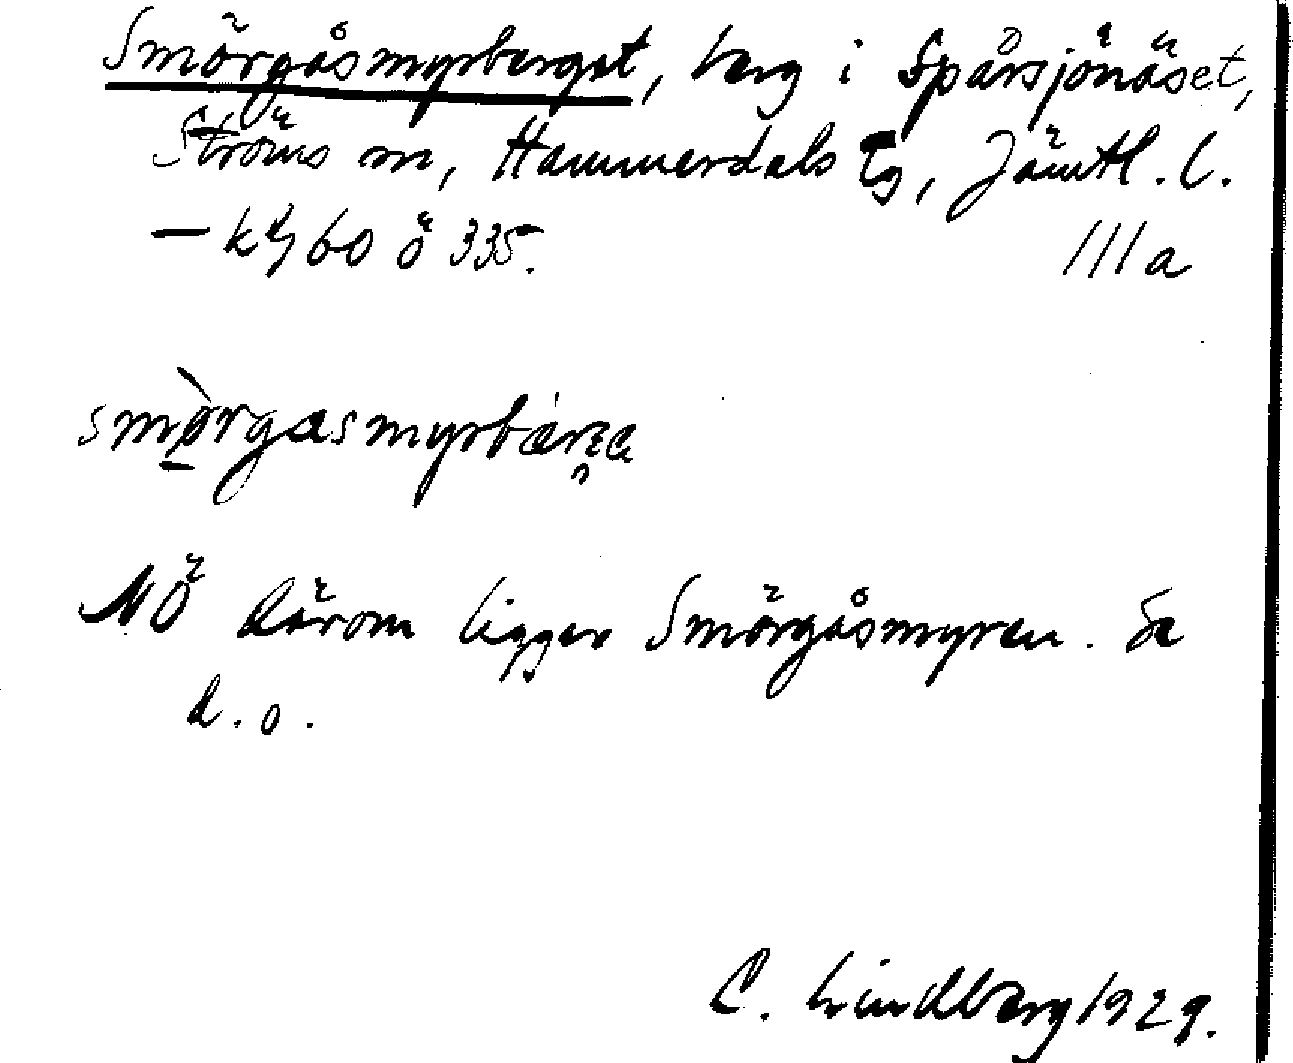 Smörgåsmyrberget, berg i Spårsjönäset,
Ströms sn, Hammerdals tg, Jämtl. l.
— kbl 60 ö 335. III a
smörgasmyrbärɛa
NÖ därom ligger Smörgåsmyren. Se
d. o.
C. Lindberg 1929.